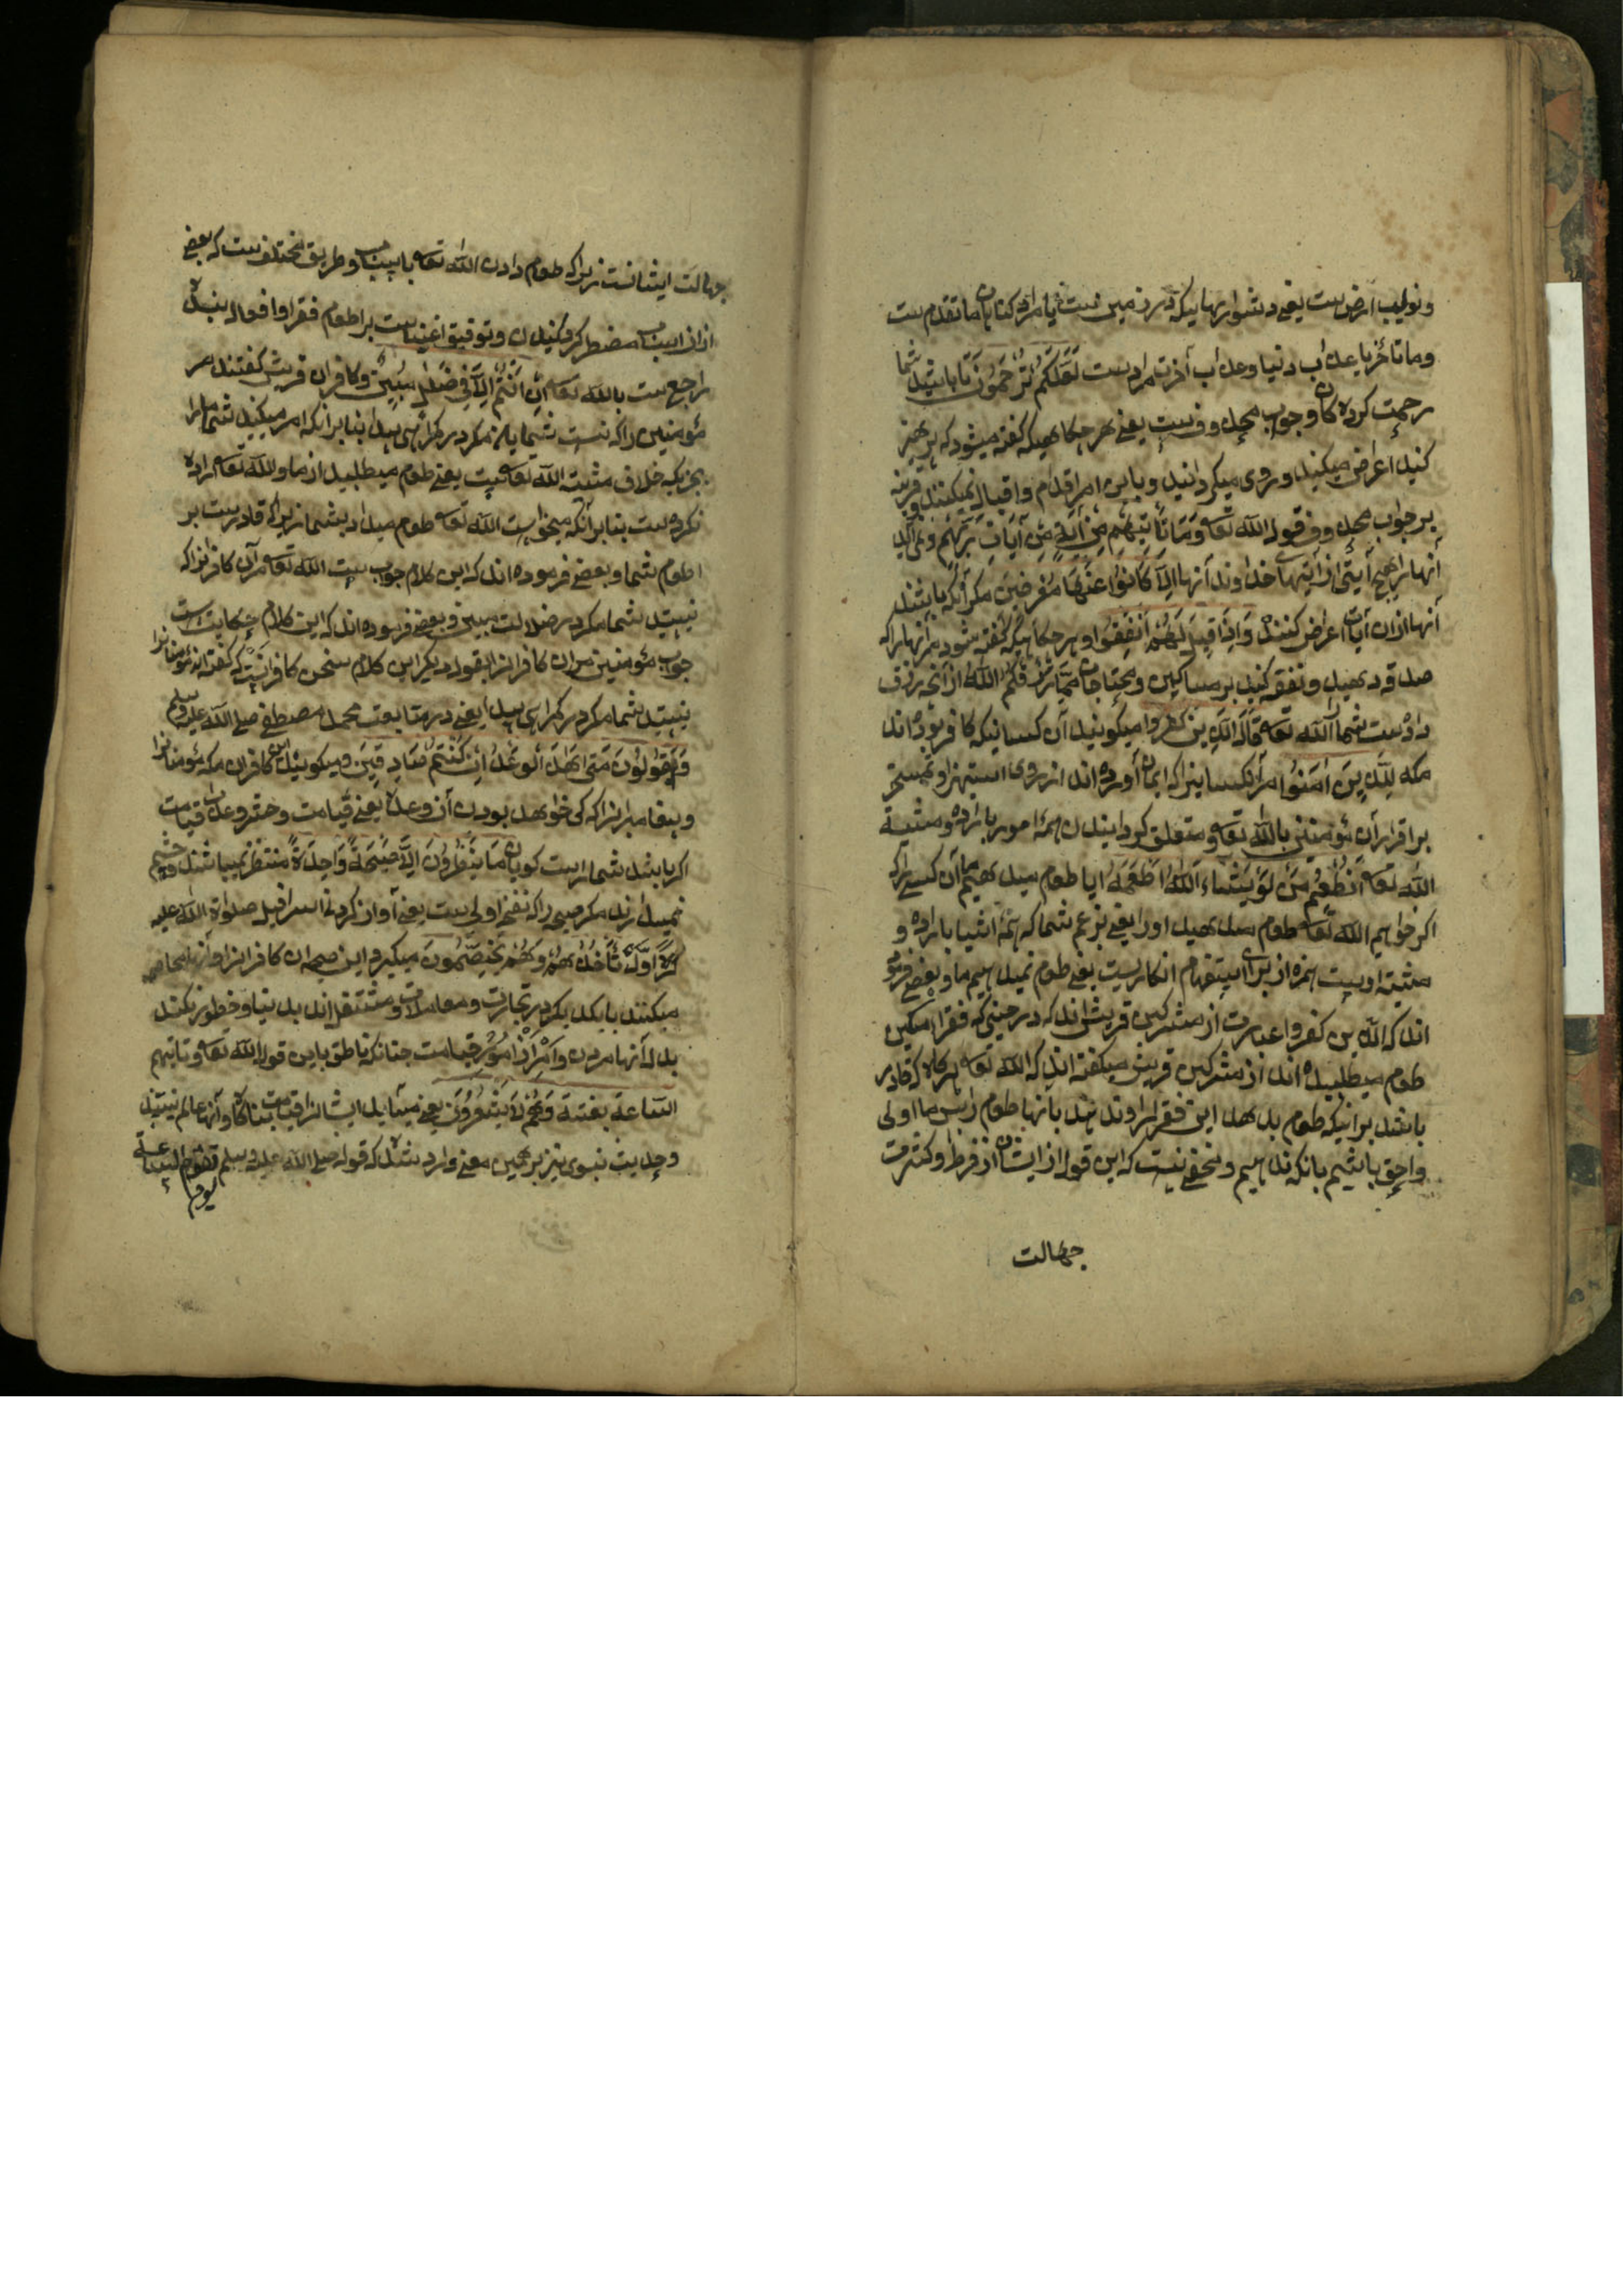 ونوایب ارض ست یعنی دشواریهاییکه در زمین ست یا مراد کناهان ما تقدم ست
وما تأخر یا عذاب دنیا وعذاب آخرت مراد ست لَعَلَّكُمْ تُرْحَمُونَ تا باشید شما
رحمت کرده کان وجواب محذوف ست یعنی هر جکاهیکه کفته میشود که پرهیز
کنید اعراض میکنید و روی میکردانید وباین امر اقدام واقبال نمیکنند وقرینه
بر جواب محذوف قوله الله تعه وَمَا تَأْتِيهِمْ مِنْ آيَةٍ مِنْ آيَاتِ رَبِّهِمْ ونمی آید
آنها را هیچ آیتی از آیتهای خداوند آنها اِلَّا كَانُوا عَنْهَا مُعْرِضِينَ مکر آنکه باشند
آنها ازان آیات اعراض کننده وَاِذَا قِيلَ لَهُمْ اَنْفِقُوا وهر جکاهیکه کفته شود مر آنها را که
صدقه دهید ونفقه کنید بر مساکین ومحتاجان مِمَّا رَزَقَكُمُ اللّٰهُ از آنچه رزق
داده ست شما را الله تعه قَالَ الَّذِينَ كَفَرُوا میکویند آن کسانیکه کافر بوده اند
مکه لِلَّذِينَ اٰمَنُوا مر آنکسانیرا که ایمان آورده اند از روی استهزا وتمسخر
بر اقرار آن مؤمنین بالله تعه ومتعلق کردانیدن همهٔ امور بارادهٔ ومشیهٔ
الله تعه اَنُطْعِمُ مَنْ لَوْ يَشَاءُ اللّٰهُ اَطْعَمَهُ ایا طعوم میدهیم ما آن کسی را که
اکر خواهیم الله تعه طعوم میدهید اورا یعنی بزعم شما که همهٔ اشیا بارادهٔ و
مشیتهٔ اوست همزه از برای استفهام انکاریست یعنی طعوم نمیدهیم ما وبعضی فرموده
اند که الذین کفروا عبارت از مشرکین قریش اند که در حینی که فقراء مسکین
طعوم میطلبیده اند از مشرکین قریش میکفته اند که الله تعه هر کاه که قادر
باشد بر اینکه طعوم بدهد این فقرا را وندهد بانها طعوم را پس ما اولی
واحق باشیم بانکه ندهیم ومخفی نیست که این قول از ایشان از فرط وکثرت
جهالت
جهالت ایشانست زیرا که طعوم دادن الله تعه باسباب وطریق مختلف ست که بعضی
ازان اسباب مضطر کردانیدن وتوفیق اغنیاست بر اطعوم فقرا وافوال بنده
راجع ست بالله تعه اِنْ اَنْتُمْ اِلَّا فِي ضَلٰلٍ مُبِينٍ وکافران قریش کفتند مر
مؤمنین را که نیست شمایان مکر در کمراهی پیدا بنابر آنکه امر میکنید شما مارا
بچیزیکه خلاف مشیت الله تعه ست یعنی طعوم میطلبید از ما والله تعه اراده
نکرده ست بنابر آنکه میخواست الله تعه طعوم میداد بشما زیرا که قادر ست بر
اطعوم شما وبعضی فرموده اند که این کلام جواب ست الله تعه مر آن کافرانرا که
نیستید شما مکر در ضلالت مبین وبعضی فرموده اند که این کلام حکایت ست
جواب مؤمنین مر آن کافرانرا بقول دیکر این کلام سخن کافرانست که کفته اند مؤمنانرا
نیستید شما مکر در کمراهی پیدا یعنی در متابعت محمد مصطفی صلی الله علیه وسلم
وَيَقُولُونَ مَتٰى هٰذَا الْوَعْدُ اِنْ كُنْتُمْ صَادِقِينَ ومیکویند این کافران مکه مؤمنانرا
وپیغامبرانرا که کی خواهد بودن آن وعده یعنی قیامت وحشر وعذاب قیامت
اکر باشد شما راست کویان مَا يَنْظُرُونَ اِلَّا صَيْحَةً وَاحِدَةً منتظر نمیباشند وچشم
نمیدارند مکر صیحه را که نفخهٔ اولی ست یعنی آواز کردن اسرافیل صلوات الله علیه
کرهٔ اول تَأْخُذُهُمْ وَهُمْ يَخِصِّمُونَ میکیرد این صیحه آن کافرانرا وآنها مخاصمه
میکنند بایکدیکر در تجارت ومعاملات ومشتغل اند بدنیا وخطور نکند
بدل آنها مردن وامری از امور قیامت چنانکه ناطق باین قول الله تعه وتاتیهم
الساعة بغتة وَهُمْ لَا يَشْعُرُونَ یعنی میآید ایشانرا قیامت ناکاه وآنها عالم نیستند
وحدیث نبوی نیز بر همین معنی وارد شده که قوله صلی الله علیه وسلم تقوم الساعة
یوم